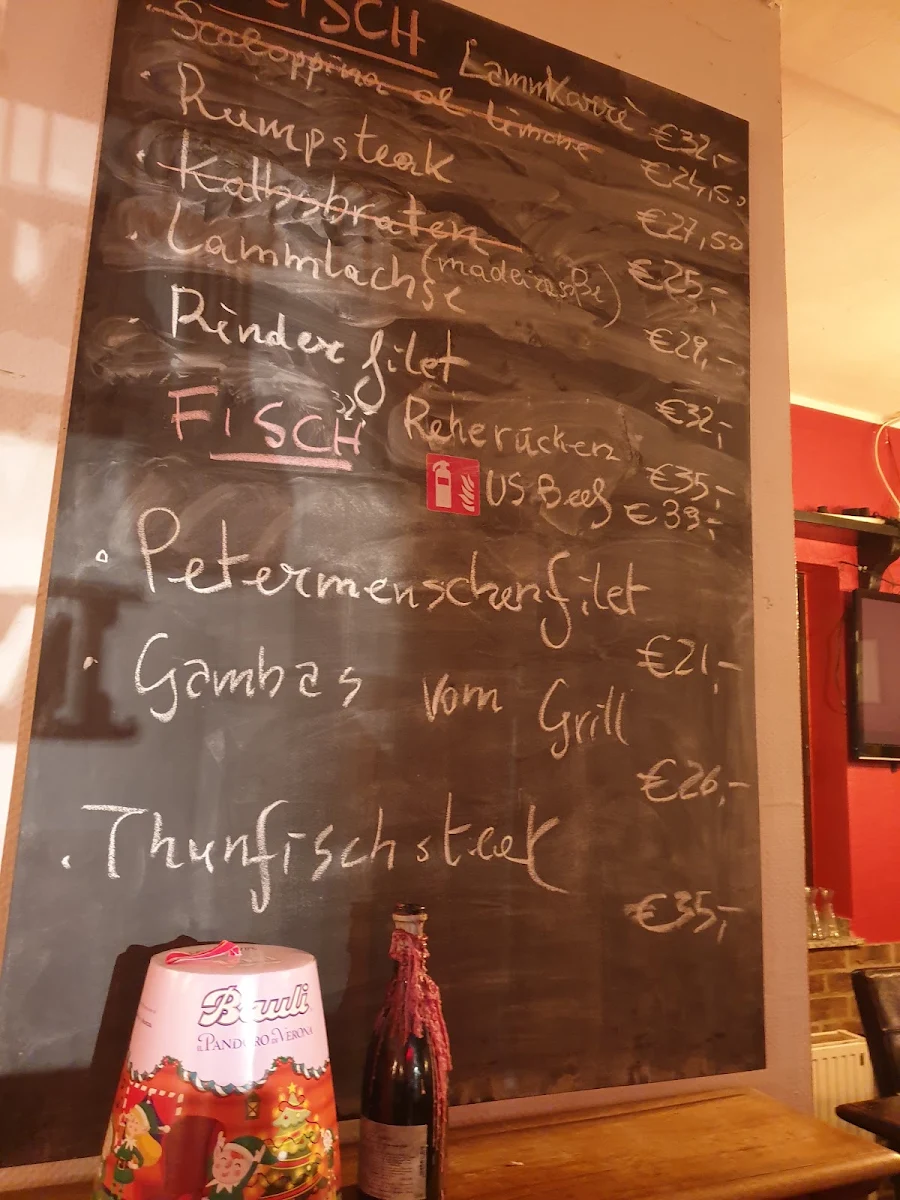 FISCH
Lammkarrè €32,-
Scaloppina al limone €24,50
Rumpsteak €27,50
Kalbsbraten (madeirasoße) €25,-
Lammlachse €29,-
Rinderfilet €32,-
32,
FISCH
Reherücken €35,-
US Beef €39,-
Petermenschenfilet €21,-
Gambas vom Grill €26,-
Thunfischsteak €35,-
Bauli
IL PANDORO DI VERONA